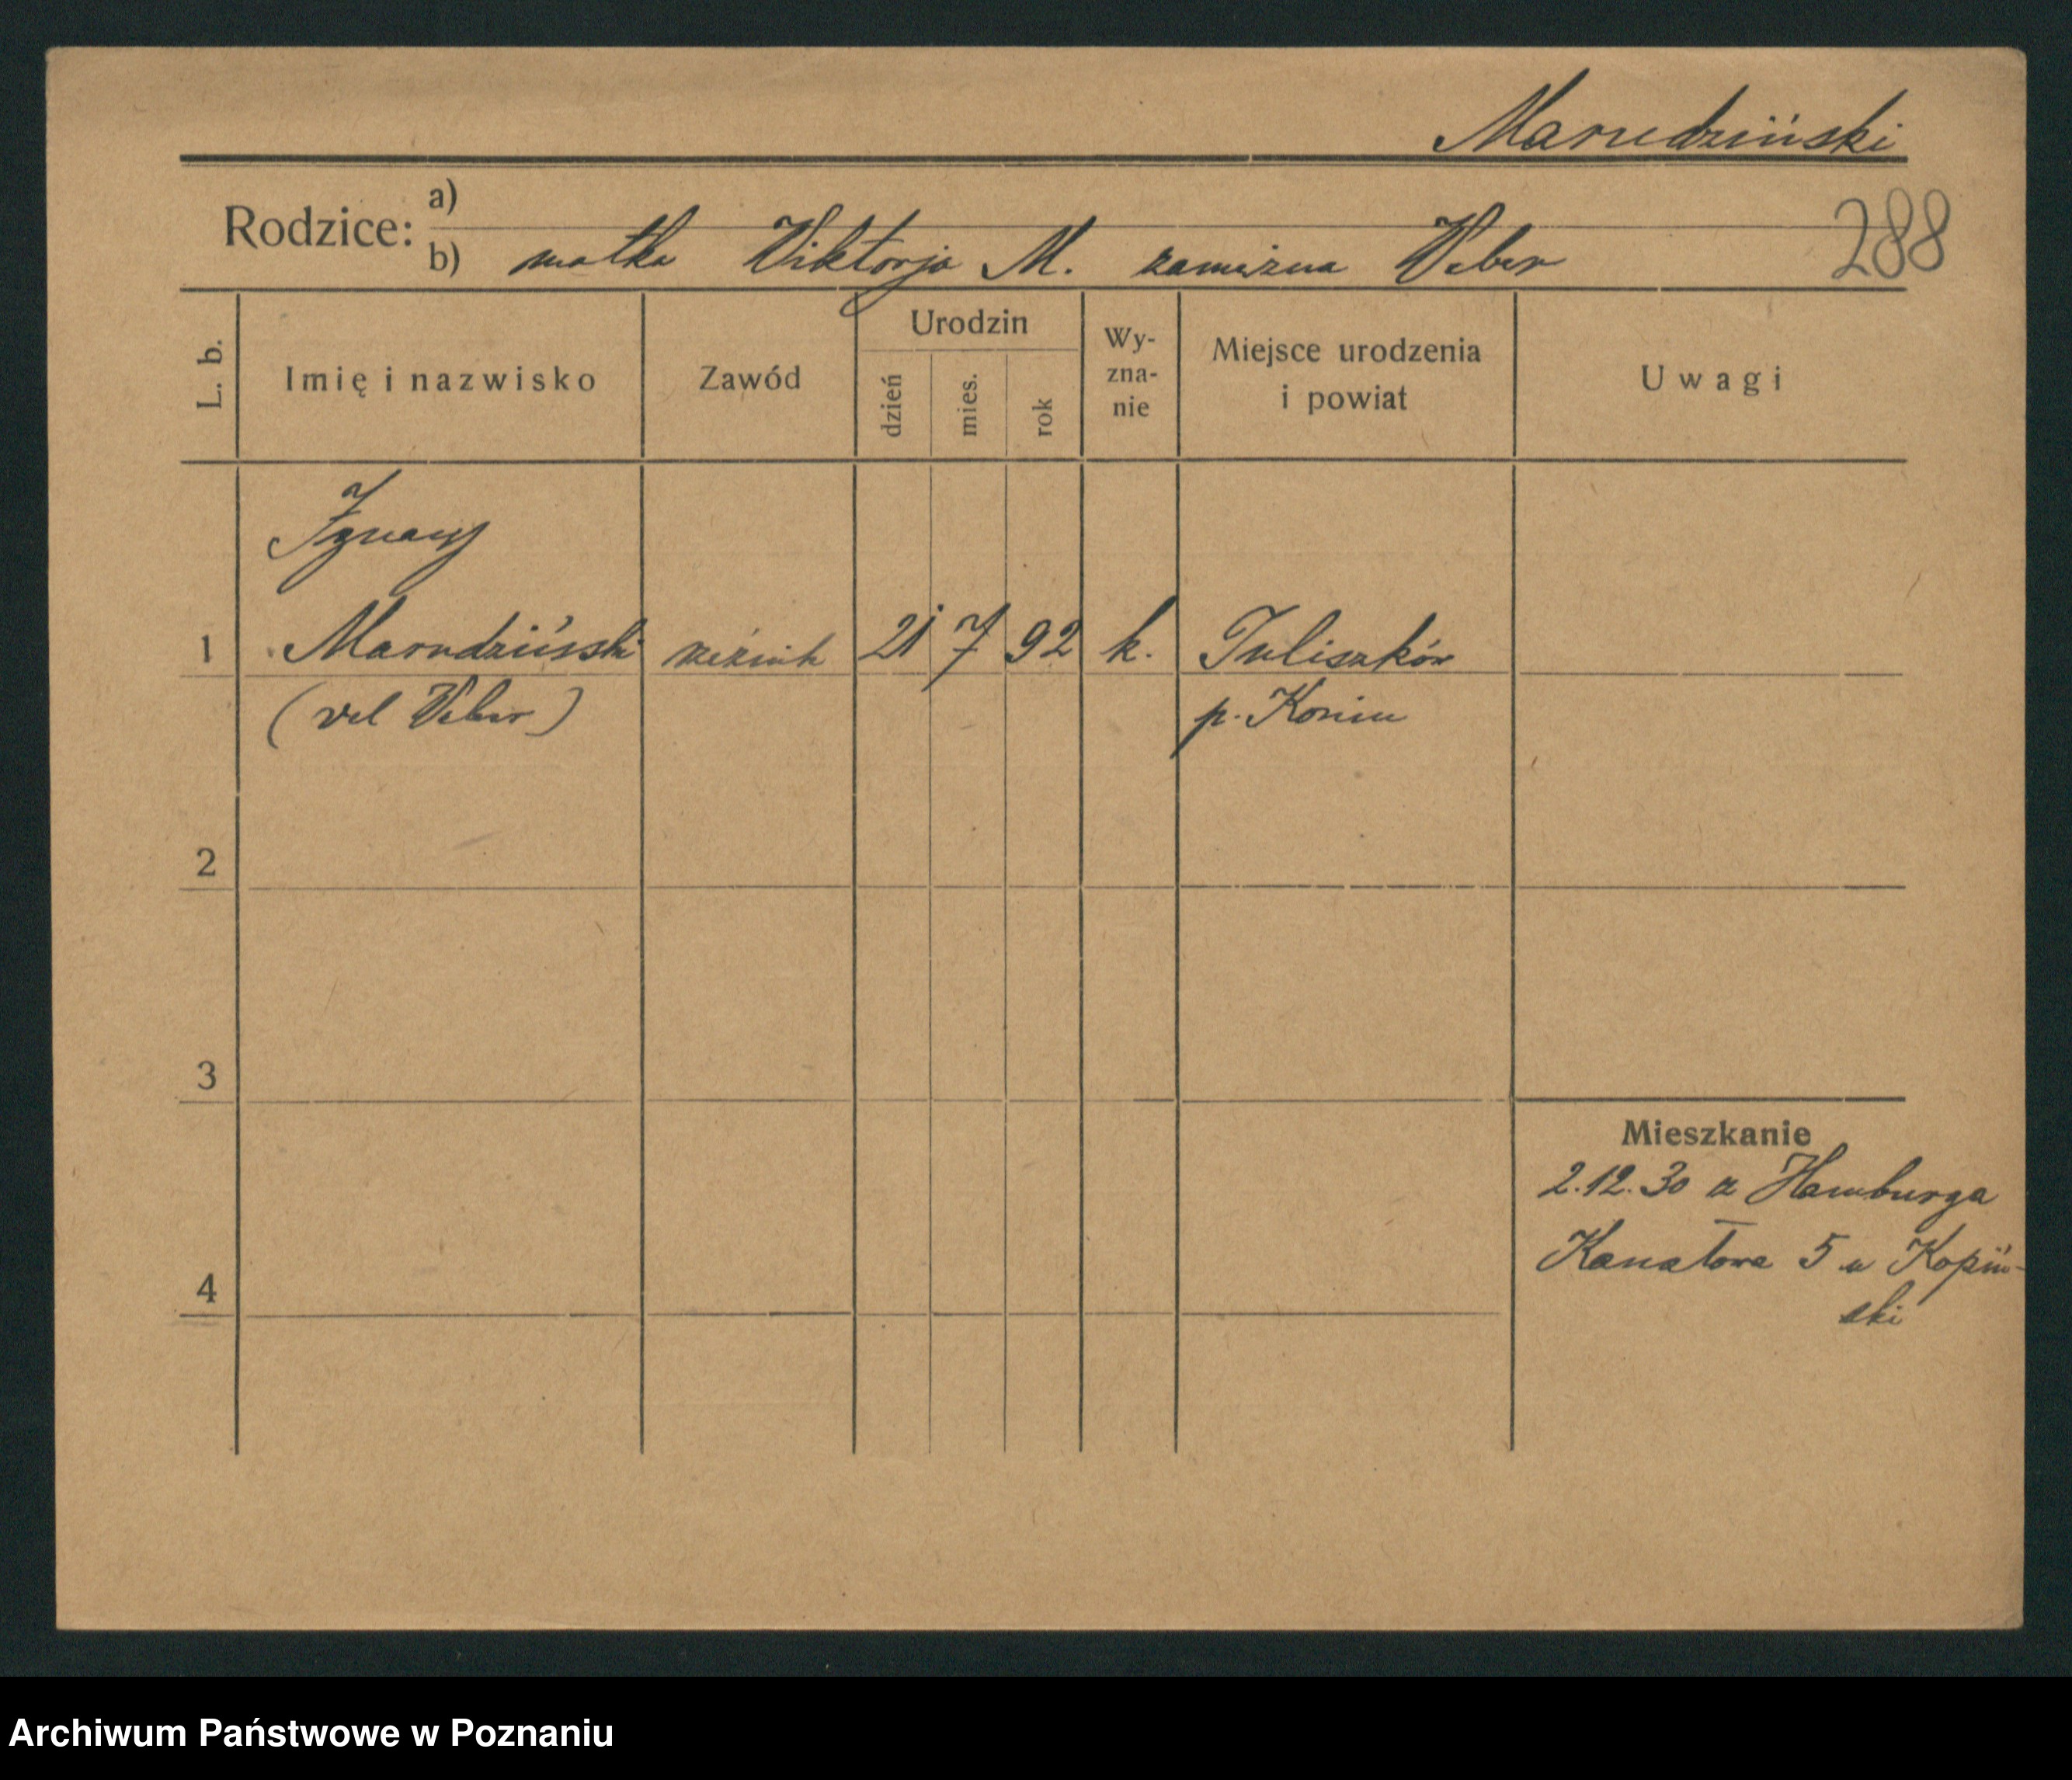 Marudziński
Rodzice: a)
b) matka Viktorja M. zamężna Veber
288
L. b.
Imię i nazwisko
Zawód
Urodzin
dzień
mies.
rok
Wy-
zna-
nie
Miejsce urodzenia
i powiat
Uwagi
Ignacy
1 Marudziński rzeźnik 21 7 92 k. Tuliszków
(vel Veber) p. Konin
2
3
Mieszkanie
2.12.30 z Hamburga
Kanałowa 5 u Kopiń-
ski
4
Archiwum Państwowe w Poznaniu